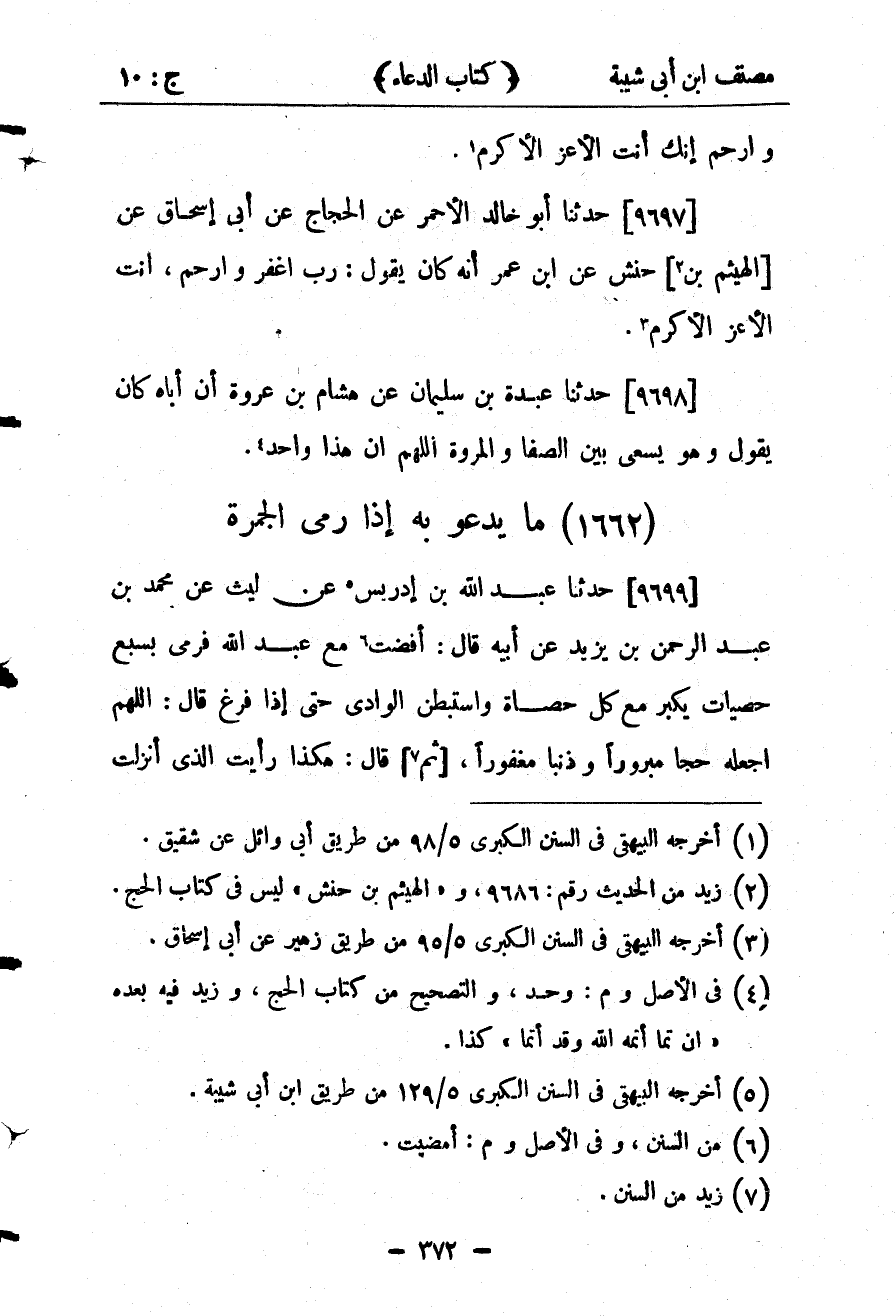 مصنف ابن أبى شيبة ﴿ كتاب الدعاء ﴾ ج : ١٠
و ارحم إنك أنت الأعز الأكرم١ .
[٩٦٩٧] حدثنا أبو خالد الأحمر عن الحجاج عن أبى إسحاق عن
[الهيثم بن٢] حنش عن ابن عمر أنه كان يقول : رب اغفر و ارحم ، انت
الأعز الأكرم٣ .
[٩٦٩٨] حدثنا عبدة بن سليمان عن هشام بن عروة أن أباه كان
يقول و هو يسعى بين الصفا و المروة اللهم ان هذا واحد٤ .
(١٦٦٢) ما يدعو به إذا رمى الجمرة
[٩٦٩٩] حدثنا عبد الله بن إدريس٥ عن ليث عن محمد بن
عبد الرحمن بن يزيد عن أبيه قال : أفضت٦ مع عبد الله فرمى بسبع
حصيات يكبر مع كل حصاة واستبطن الوادى حتى إذا فرغ قال : اللهم
اجعله حجا مبروراً و ذنبا مغفوراً ، [ثم٧] قال : هكذا رأيت الذى أنزلت
(١) أخرجه البيهقى فى السنن الكبرى ٩٨/٥ من طريق أبى وائل عن شقيق .
(٢) زيد من الحديث رقم : ٩٦٨٦ ، و « الهيثم بن حنش » ليس فى كتاب الحج .
(٣) أخرجه البيهقى فى السنن الكبرى ٩٥/٥ من طريق زهير عن أبى إسحاق .
(٤) فى الأصل و م : وحد ، و التصحيح من كتاب الحج ، و زيد فيه بعده
« ان تما أتمه الله وقد أتما » كذا .
(٥) أخرجه البيهقى فى السنن الكبرى ١٢٩/٥ من طريق ابن أبى شيبة .
(٦) من السنن ، و فى الأصل و م : أمضيت .
(٧) زيد من السنن .
– ٣٧٢ –